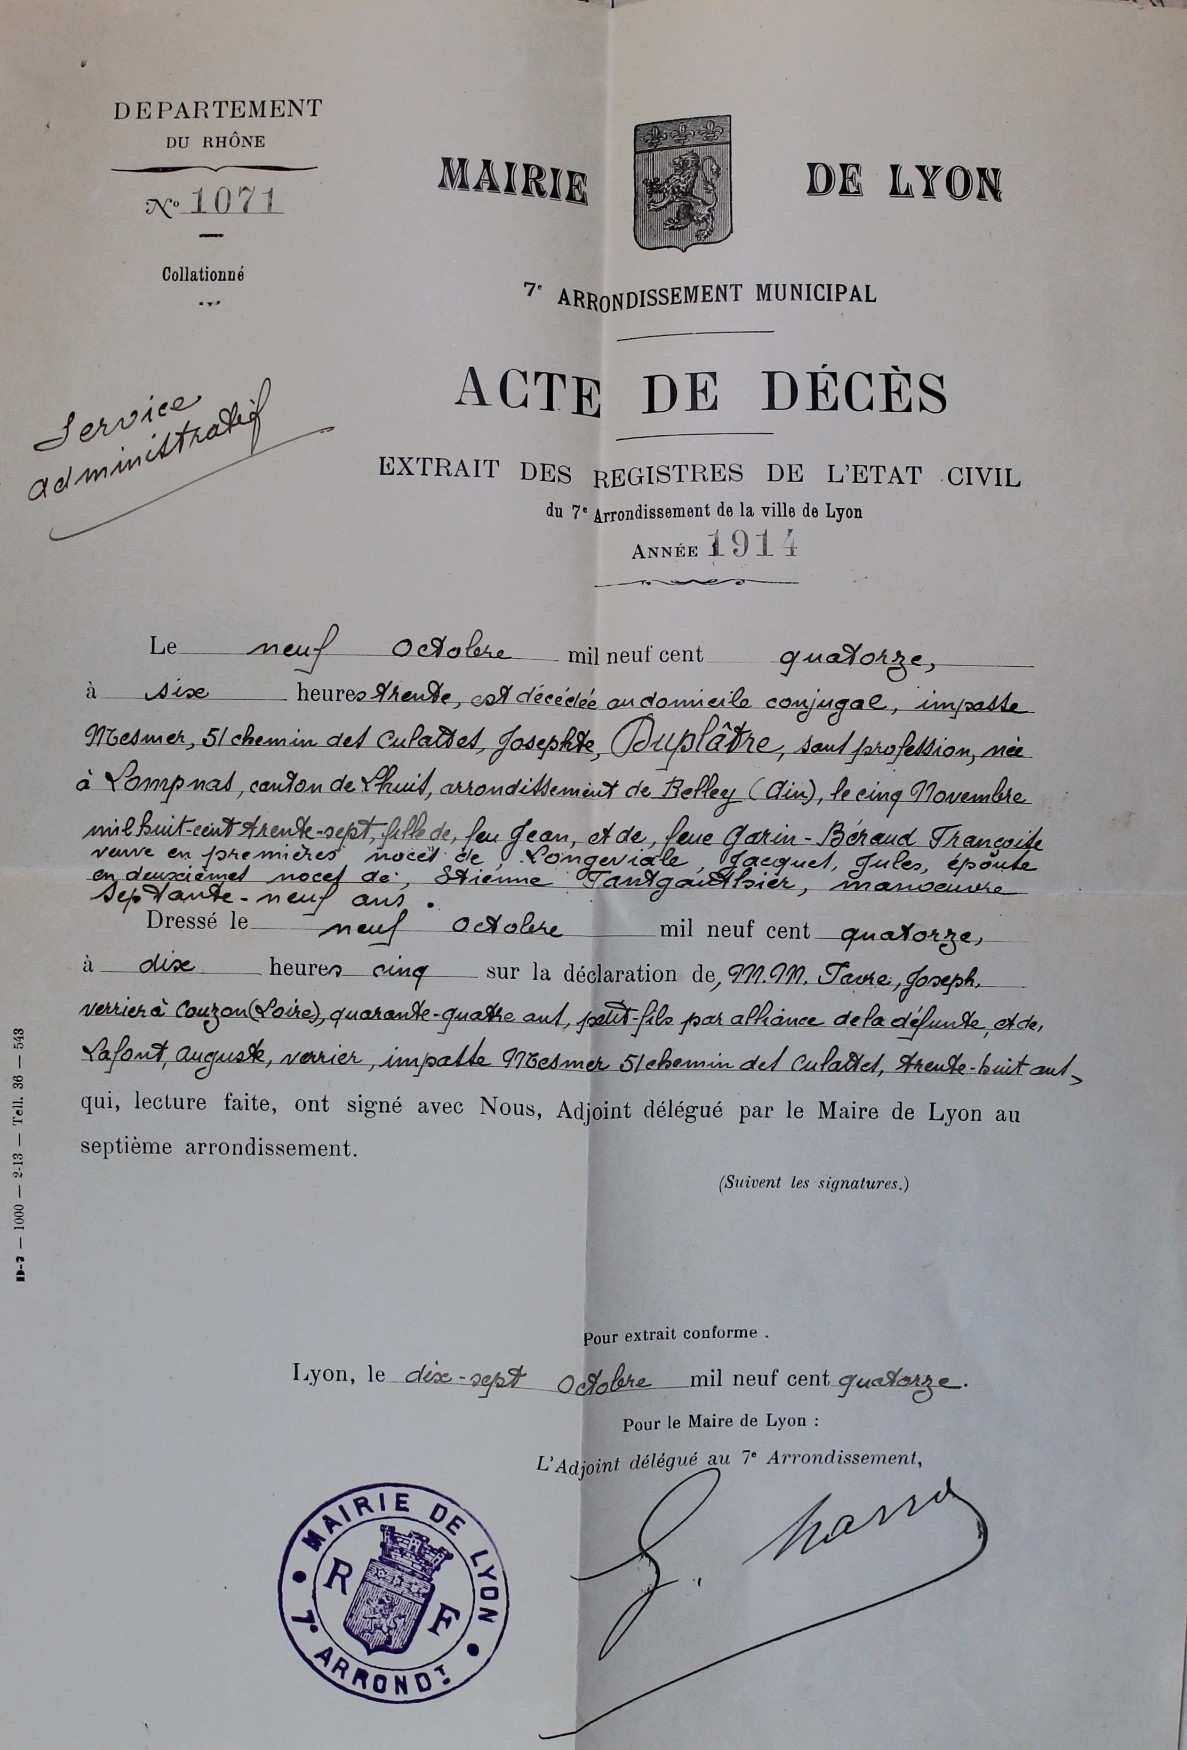 DEPARTEMENT
DU RHÔNE
No 1071
Collationné
Service
administratif
MAIRIE DE LYON
7e ARRONDISSEMENT MUNICIPAL
ACTE DE DÉCÈS
EXTRAIT DES REGISTRES DE L'ETAT CIVIL
du 7e Arrondissement de la ville de Lyon
ANNÉE 1914
Le neuf octobre mil neuf cent quatorze,
à six heures trente, est décédée au domicile conjugal, impasse
Mesmer, 51 chemin des Culattes, Josephte, Duplâtre, sans profession, née
à Lompnas, canton de Lhuis, arrondissement de Belley (Ain), le cinq Novembre
mil huit-cent trente-sept, fille de, feu Jean, et de, feue Garin-Béraud Françoise
veuve en premières noces de, Longeviale, Jacques, Jules, épouse
en deuxièmes noces de, Etienne Tantgauthier, manoeuvre
septante-neuf ans.
Dressé le neuf octobre mil neuf cent quatorze,
à dix heures cinq sur la déclaration de, M.M. Favre, Joseph,
verrier à Couzon (Loire), quarante-quatre ans, petit-fils par alliance de la défunte, et de,
Lafont, Auguste, verrier, impasse Mesmer 51 chemin des Culattes, trente-huit ans,
qui, lecture faite, ont signé avec Nous, Adjoint délégué par le Maire de Lyon au
septième arrondissement.
(Suivent les signatures.)
D-7 — 1000 — 2-13 — Tell. 36 — 543
Pour extrait conforme.
Lyon, le dix-sept octobre mil neuf cent quatorze.
Pour le Maire de Lyon :
L'Adjoint délégué au 7e Arrondissement,
MAIRIE DE LYON
R F
7e ARRONDT